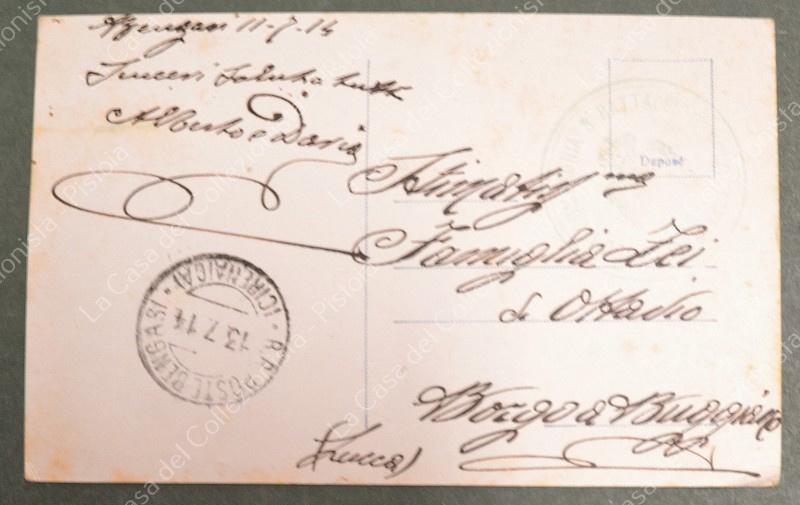 11-7-14
Sinceri Saluti a tutti
Alberto e Daria
Stimatis.ma
Famiglia Zei
di Ottavio
Borgo a Buggiano
(Lucca)
R.R. POSTE BENGASI (CIRENAICA)
13.7.14
Deposé
La Casa del Collezionista - Pistoia